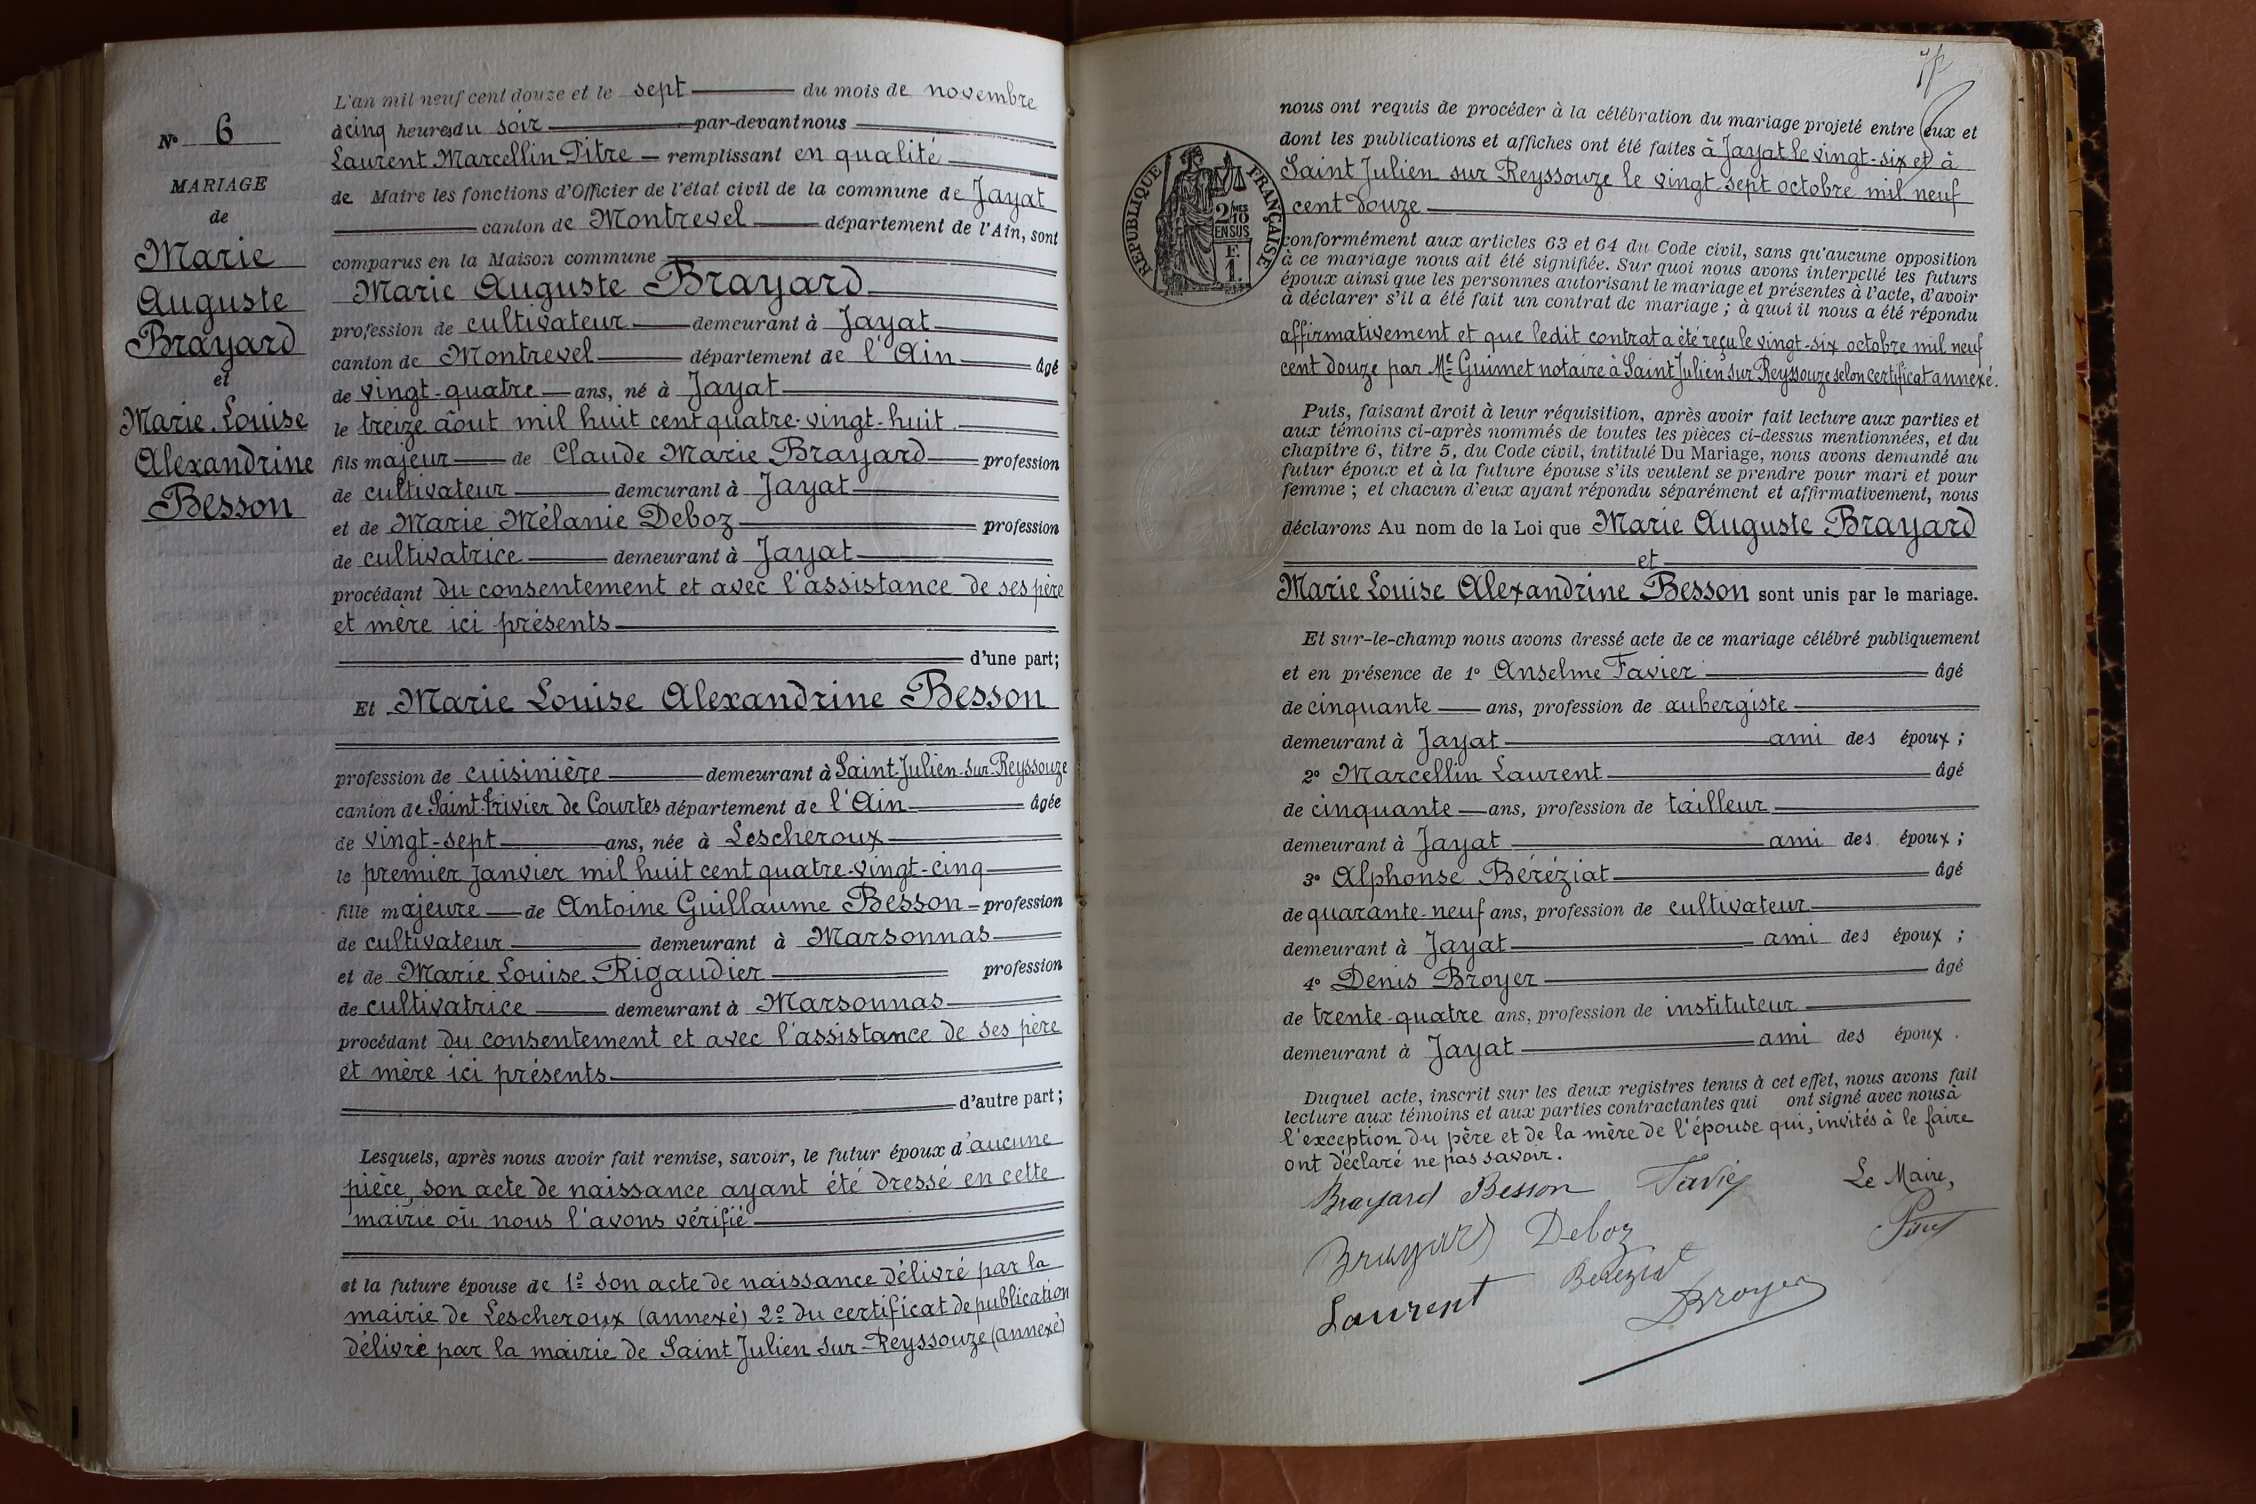 N° 6
MARIAGE
de
Marie
Auguste
Brayard
et
Marie Louise
Alexandrine
Besson
L'an mil neuf cent douze et le sept du mois de novembre
à cinq heures du soir par-devant nous
Laurent Marcellin Pitre remplissant en qualité
de Maire les fonctions d'Officier de l'état civil de la commune de Jayat
canton de Montrevel département de l'Ain, sont
comparus en la Maison commune
Marie Auguste Brayard
profession de cultivateur demeurant à Jayat
canton de Montrevel département de l'Ain âgé
de vingt-quatre ans, né à Jayat
le treize août mil huit cent quatre-vingt-huit
fils majeur de Claude Marie Brayard profession
de cultivateur demeurant à Jayat
et de Marie Mélanie Deboz profession
de cultivatrice demeurant à Jayat
procédant du consentement et avec l'assistance de ses père
et mère ici présents
d'une part;
Et Marie Louise Alexandrine Besson
profession de cuisinière demeurant à Saint-Julien-sur-Reyssouze
canton de Saint-Trivier de Courtes département de l'Ain âgée
de vingt-sept ans, née à Lescheroux
le premier Janvier mil huit cent quatre-vingt-cinq
fille majeure de Antoine Guillaume Besson profession
de cultivateur demeurant à Marsonnas
et de Marie Louise Rigaudier profession
de cultivatrice demeurant à Marsonnas
procédant du consentement et avec l'assistance de ses père
et mère ici présents
d'autre part;
Lesquels, après nous avoir fait remise, savoir, le futur époux d'aucune
pièce, son acte de naissance ayant été dressé en cette
mairie où nous l'avons vérifié
et la future épouse de 1° son acte de naissance délivré par la
mairie de Lescheroux (annexé) 2° du certificat de publication
délivré par la mairie de Saint Julien sur-Reyssouze (annexé)
nous ont requis de procéder à la célébration du mariage projeté entre eux et
dont les publications et affiches ont été faites à Jayat le vingt-six et à
Saint Julien sur Reyssouze le vingt sept octobre mil neuf
cent douze
RÉPUBLIQUE FRANÇAISE
2/10 MES
EN SUS
F.
1.
conformément aux articles 63 et 64 du Code civil, sans qu'aucune opposition
à ce mariage nous ait été signifiée. Sur quoi nous avons interpellé les futurs
époux ainsi que les personnes autorisant le mariage et présentes à l'acte, d'avoir
à déclarer s'il a été fait un contrat de mariage ; à quoi il nous a été répondu
affirmativement et que ledit contrat a été reçu le vingt-six octobre mil neuf
cent douze par Me Guimet notaire à Saint Julien sur Reyssouze selon certificat annexé.
Puis, faisant droit à leur réquisition, après avoir fait lecture aux parties et
aux témoins ci-après nommés de toutes les pièces ci-dessus mentionnées, et du
chapitre 6, titre 5, du Code civil, intitulé Du Mariage, nous avons demandé au
futur époux et à la future épouse s'ils veulent se prendre pour mari et pour
femme ; et chacun d'eux ayant répondu séparément et affirmativement, nous
déclarons Au nom de la Loi que Marie Auguste Brayard
et
Marie Louise Alexandrine Besson sont unis par le mariage.
Et sur-le-champ nous avons dressé acte de ce mariage célébré publiquement
et en présence de 1° Anselme Favier âgé
de cinquante ans, profession de aubergiste
demeurant à Jayat ami des époux ;
2° Marcellin Laurent âgé
de cinquante ans, profession de tailleur
demeurant à Jayat ami des époux ;
3° Alphonse Béréziat âgé
de quarante-neuf ans, profession de cultivateur
demeurant à Jayat ami des époux ;
4° Denis Broyer âgé
de trente-quatre ans, profession de instituteur
demeurant à Jayat ami des époux.
Duquel acte, inscrit sur les deux registres tenus à cet effet, nous avons fait
lecture aux témoins et aux parties contractantes qui ont signé avec nous à
l'exception du père et de la mère de l'épouse qui, invités à le faire
ont déclaré ne pas savoir.
Brayard Besson Favier Le Maire,
Brayard Deboz Pitre
Laurent Béréziat Broyer